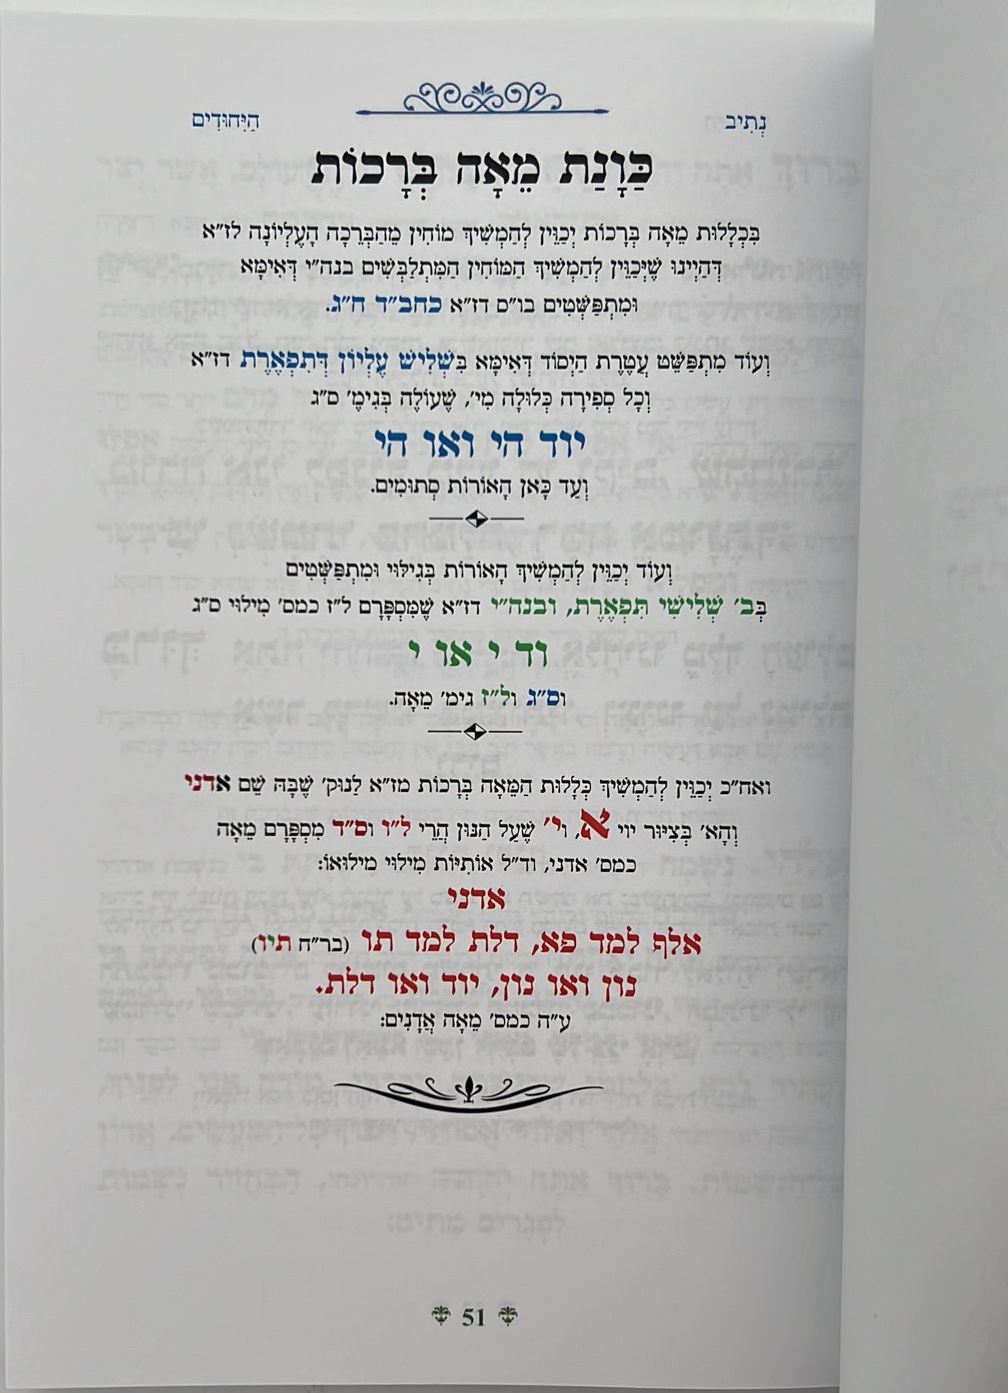 נְתִיב הַיִּחוּדִים
כַּוָּנַת מֵאָה בְּרָכוֹת
בִּכְלָלוּת מֵאָה בְּרָכוֹת יְכַוֵּין לְהַמְשִׁיךְ מוֹחִין מֵהַבְּרֵכָה הָעֶלְיוֹנָה לז״א
דְּהַיְינוּ שֶׁיְּכַוֵּין לְהַמְשִׁיךְ הַמּוֹחִין הַמִּתְלַבְּשִׁים בנה״י דְּאִימָּא
וּמִתְפַּשְּׁטִים בו״ס דז״א כחב״ד ח״ג.
וְעוֹד מִתְפַּשֵּׁט עֲטֶרֶת הַיְסוֹד דְּאִימָּא בִּשְׁלִישׁ עֶלְיוֹן דְּתִפְאֶרֶת דז״א
וְכָל סְפִירָה כְּלוּלָה מִי׳, שֶׁעוֹלֶה בְּגִימָ׳ ס״ג
יוד הי ואו הי
וְעַד כָּאן הָאוֹרוֹת סְתוּמִים.
וְעוֹד יְכַוֵּין לְהַמְשִׁיךְ הָאוֹרוֹת בְּגִילּוּי וּמִתְפַּשְּׁטִים
בְּב׳ שְׁלִישֵׁי תִּפְאֶרֶת, ובנה״י דז״א שֶׁמִּסְפָּרָם ל״ז כמס׳ מִילּוּי ס״ג
וד י או י
וס״ג ול״ז גימ׳ מֵאָה.
ואח״כ יְכַוֵּין לְהַמְשִׁיךְ כְּלָלוּת הַמֵּאָה בְּרָכוֹת מז״א לַנוּק׳ שֶׁבָּהּ שֵׁם אדני
וְהָא׳ בְּצִיּוּר יוי א, וי׳ שֶׁעַל הַנּוּן הֲרֵי ל״ו וס״ד מִסְפָּרָם מֵאָה
כמס׳ אדני, וד״ל אוֹתִיּוֹת מִילּוּי מִילּוּאוֹ:
אדני
אלף למד פא, דלת למד תו (בר״ח תיו)
נון ואו נון, יוד ואו דלת.
ע״ה כמס׳ מֵאָה אֲדָנִים:
51